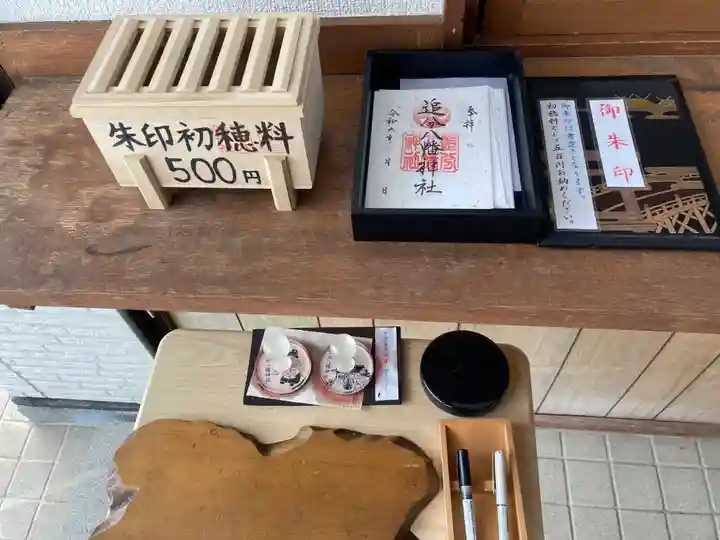 朱印初穂料
500円
奉拝
追分八幡神社
令和六年 月 日
御朱印
御朱印は書置きとなります。
初穂料として五百円お納めください。